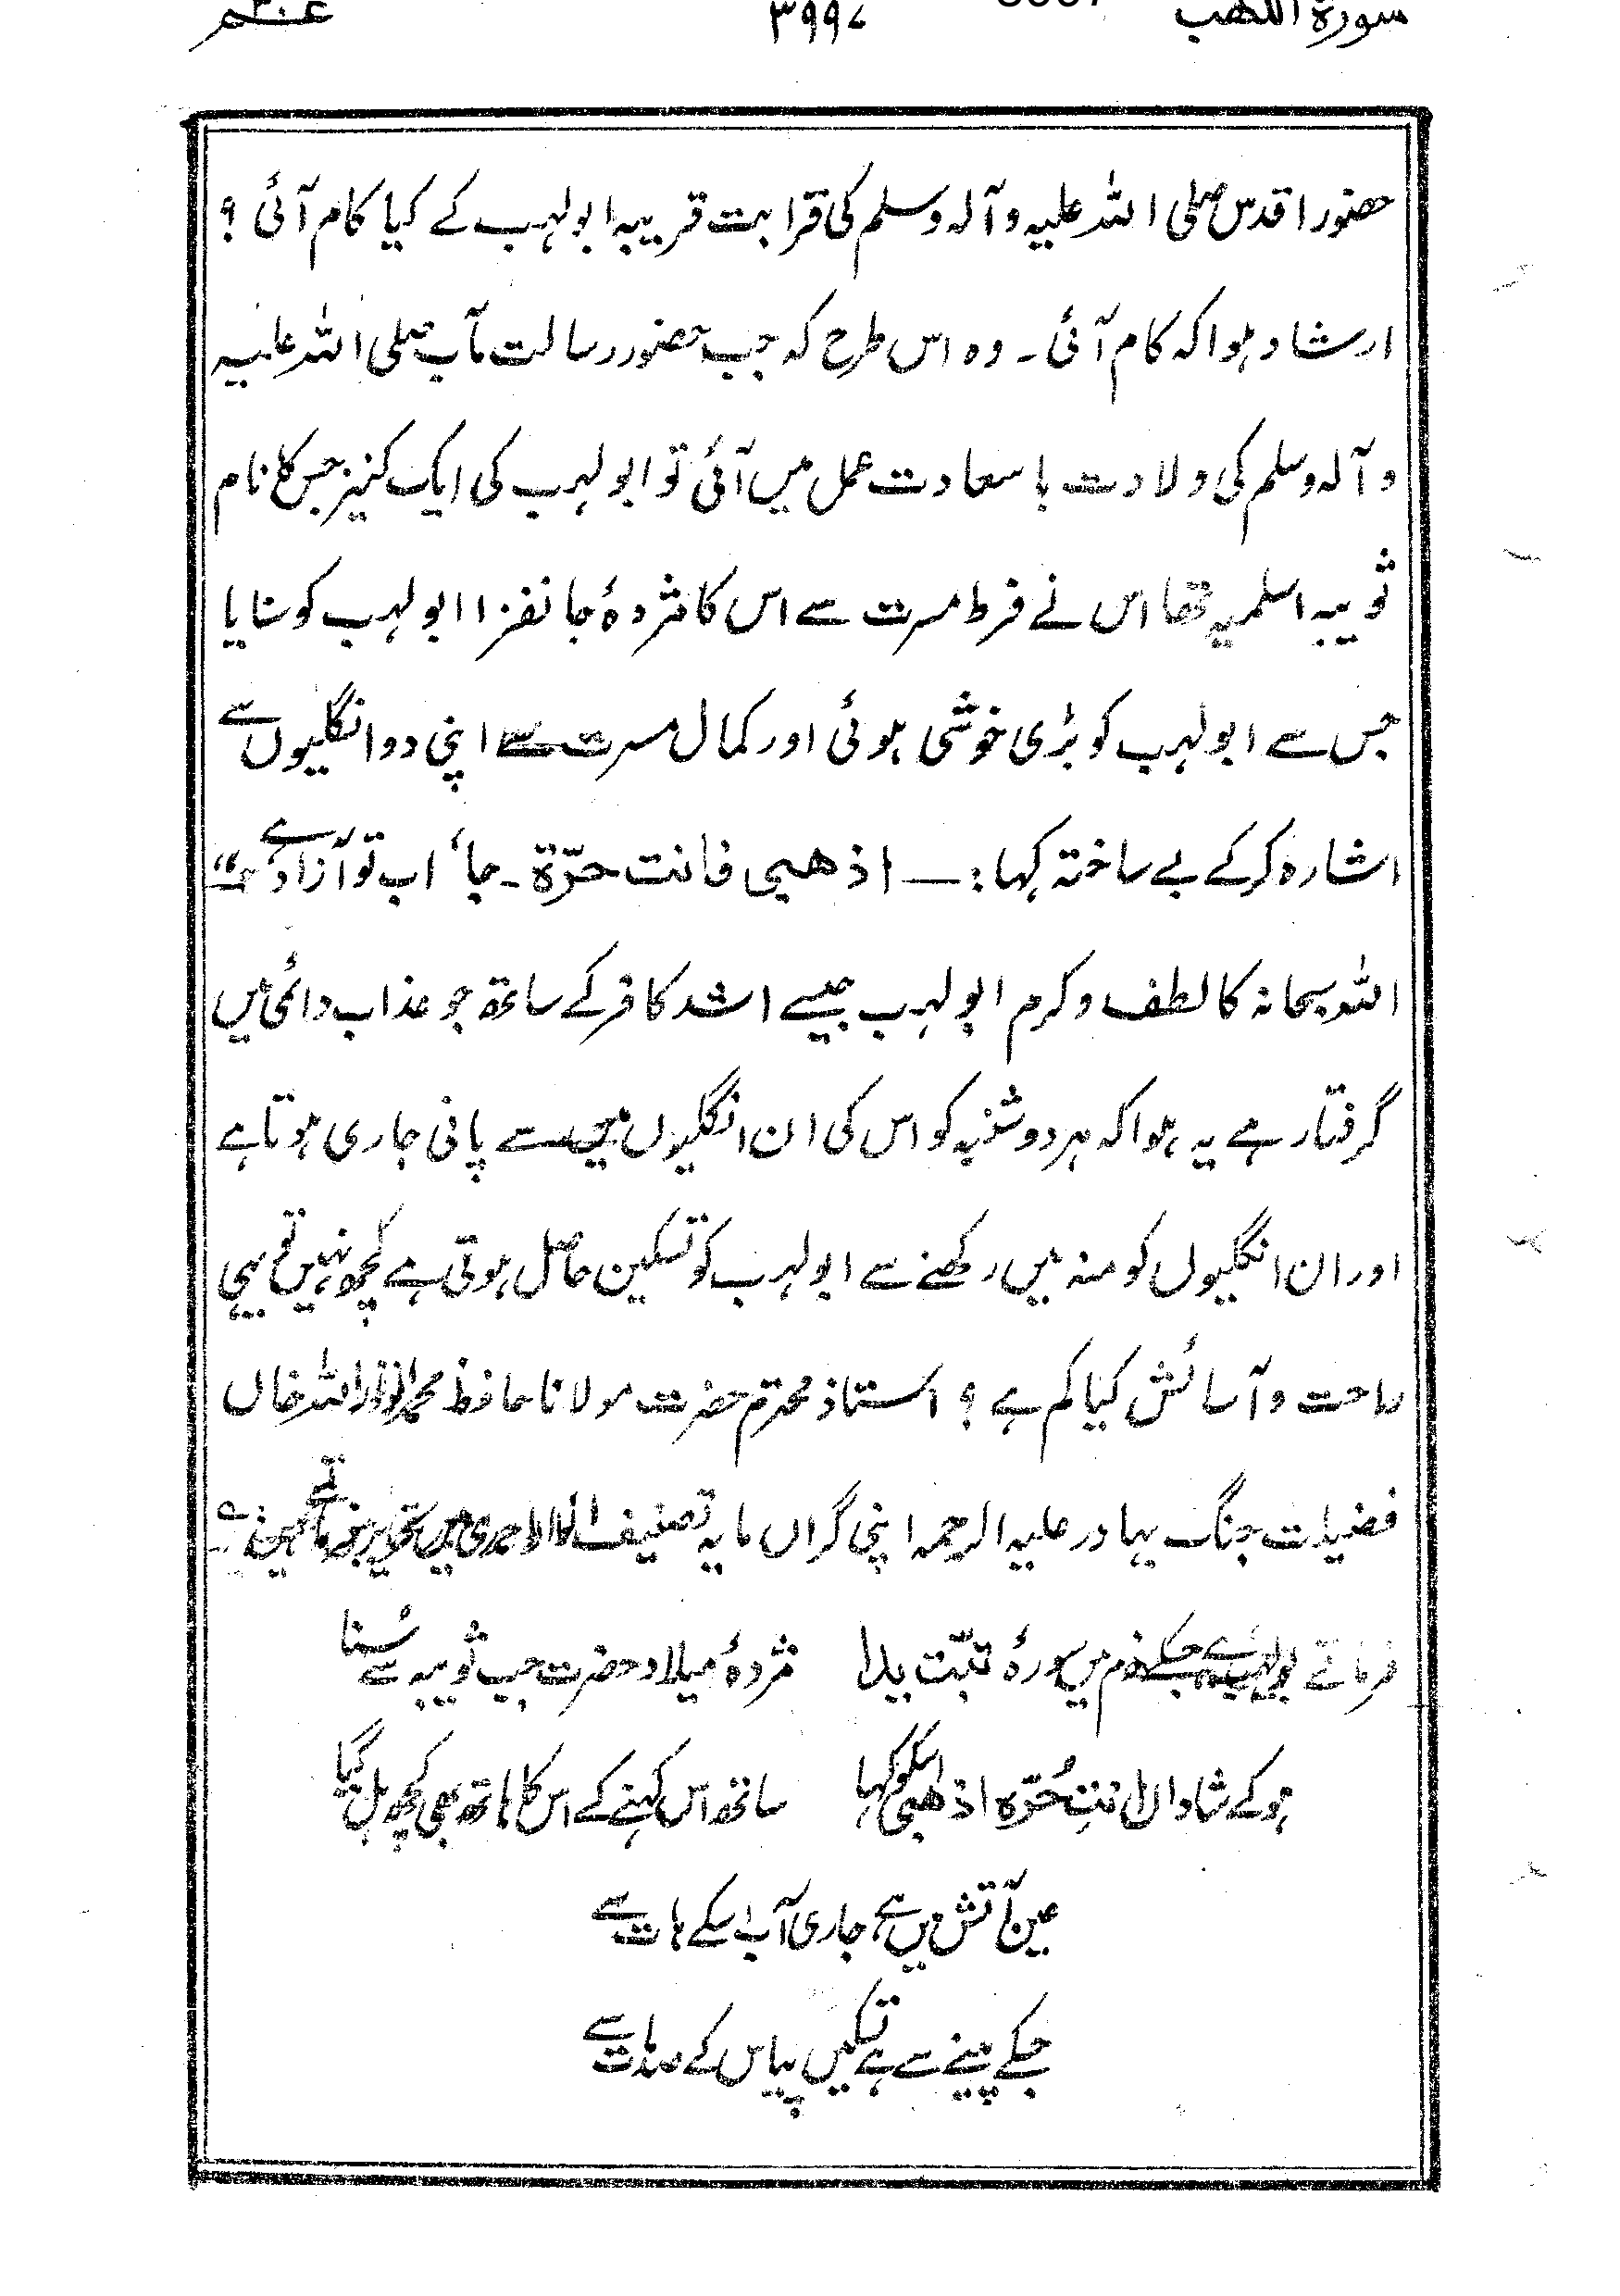 سورة اللھب ۳۹۹۷ عم
حضور اقدس صلی اللہ علیہ وآلہ وسلم کی قرابت قریبہ ابولہب کے کیا کام آئی ؟
ارشاد ہوا کہ کام آئی ۔ وہ اس طرح کہ جب حضور رسالت مآب صلی اللہ علیہ
وآلہ وسلم کی ولادت با سعادت عمل میں آئی تو ابولہب کی ایک کنیز جس کا نام
ثویبہ اسلمیہ تھا اس نے فرط مسرت سے اس کا مژدۂ جانفزا ابولہب کو سنایا
جس سے ابولہب کو بڑی خوشی ہوئی اور کمال مسرت سے اپنی دو انگلیوں سے
اشارہ کرکے بے ساختہ کہا :— اذھبی فانت حرّة ۔ جا، اب تو آزاد ہے"
اللہ سبحانہ کا لطف و کرم ابولہب جیسے اشد کافر کے ساتھ جو عذاب دائمی میں
گرفتار ہے یہ ہوا کہ ہر دوشنبہ کو اس کی ان انگلیوں میں سے پانی جاری ہوتا ہے
اور ان انگلیوں کو منہ میں رکھنے سے ابولہب کو تسکین حاصل ہوتی ہے کچھ نہیں تو یہی
راحت و آسائش کیا کم ہے ؟ استاذ محترم حضرت مولانا حافظ محمد انوار اللہ خاں
فضیلت جنگ بہادر علیہ الرحمہ اپنی گراں مایہ تصنیف انوار احمدی میں تحریر
فرماتے جسکے ذم میں سورۂ تبّت یدا مژدۂ میلاد حضرت جب ثویبہ سے سُنا
ہوکے شاداں انتِ حُرّہ اذھبی اسکو کہا ساتھ اس کہنے کے اس کا ہاتھ بھی کچھ ہل گیا
عین آتش میں ہے جاری آب اسکے ہات سے
جسکے پینے سے ہے تسکیں پیاس کے صدمات سے